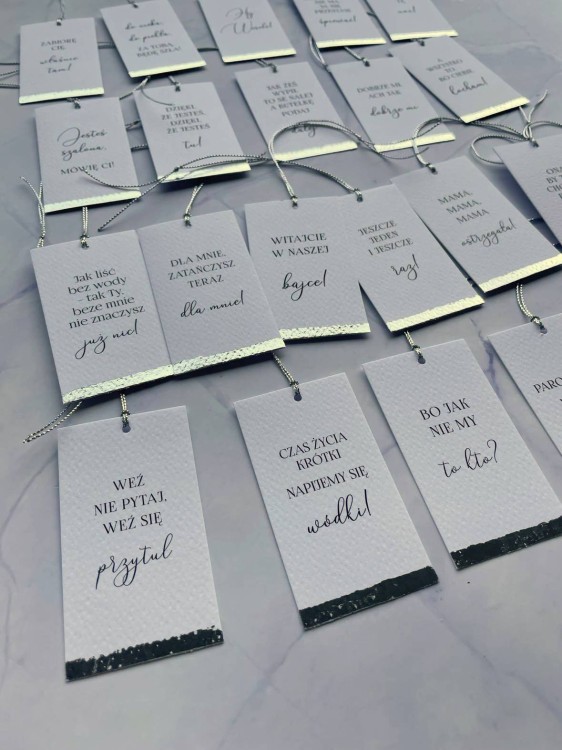 ZABIORĘ
CIĘ
właśnie
tam!
do nieba,
do piekła,
ZA TOBĄ
BĘDĘ SZŁA!
Hej
Wesele!
śpiewać!
Jesteś
szalona,
MÓWIĘ CI!
DZIĘKI,
ŻE JESTEŚ,
DZIĘKI,
ŻE JESTEŚ
Tu!
JAK ŻEŚ
WYPIŁ
TO SE NALEJ
A BUTELKĘ
PODAJ
DOBRZE MI,
ACH JAK
dobrze mi
A
WSZYSTKO
TO
BO CIEBIE
Kocham!
Jak liść
bez wody
- tak Ty,
beze mnie
nie znaczysz
już nic!
DLA MNIE,
ZATAŃCZYSZ
TERAZ
dla mnie!
WITAJCIE
W NASZEJ
bajce!
JESZCZE
JEDEN
I JESZCZE
raz!
MAMA,
MAMA,
MAMA
ostrzegała!
WEŹ
NIE PYTAJ,
WEŹ SIĘ
przytul
CZAS ŻYCIA
KRÓTKI
NAPIJEMY SIĘ
wódki!
BO JAK
NIE MY
to kto?